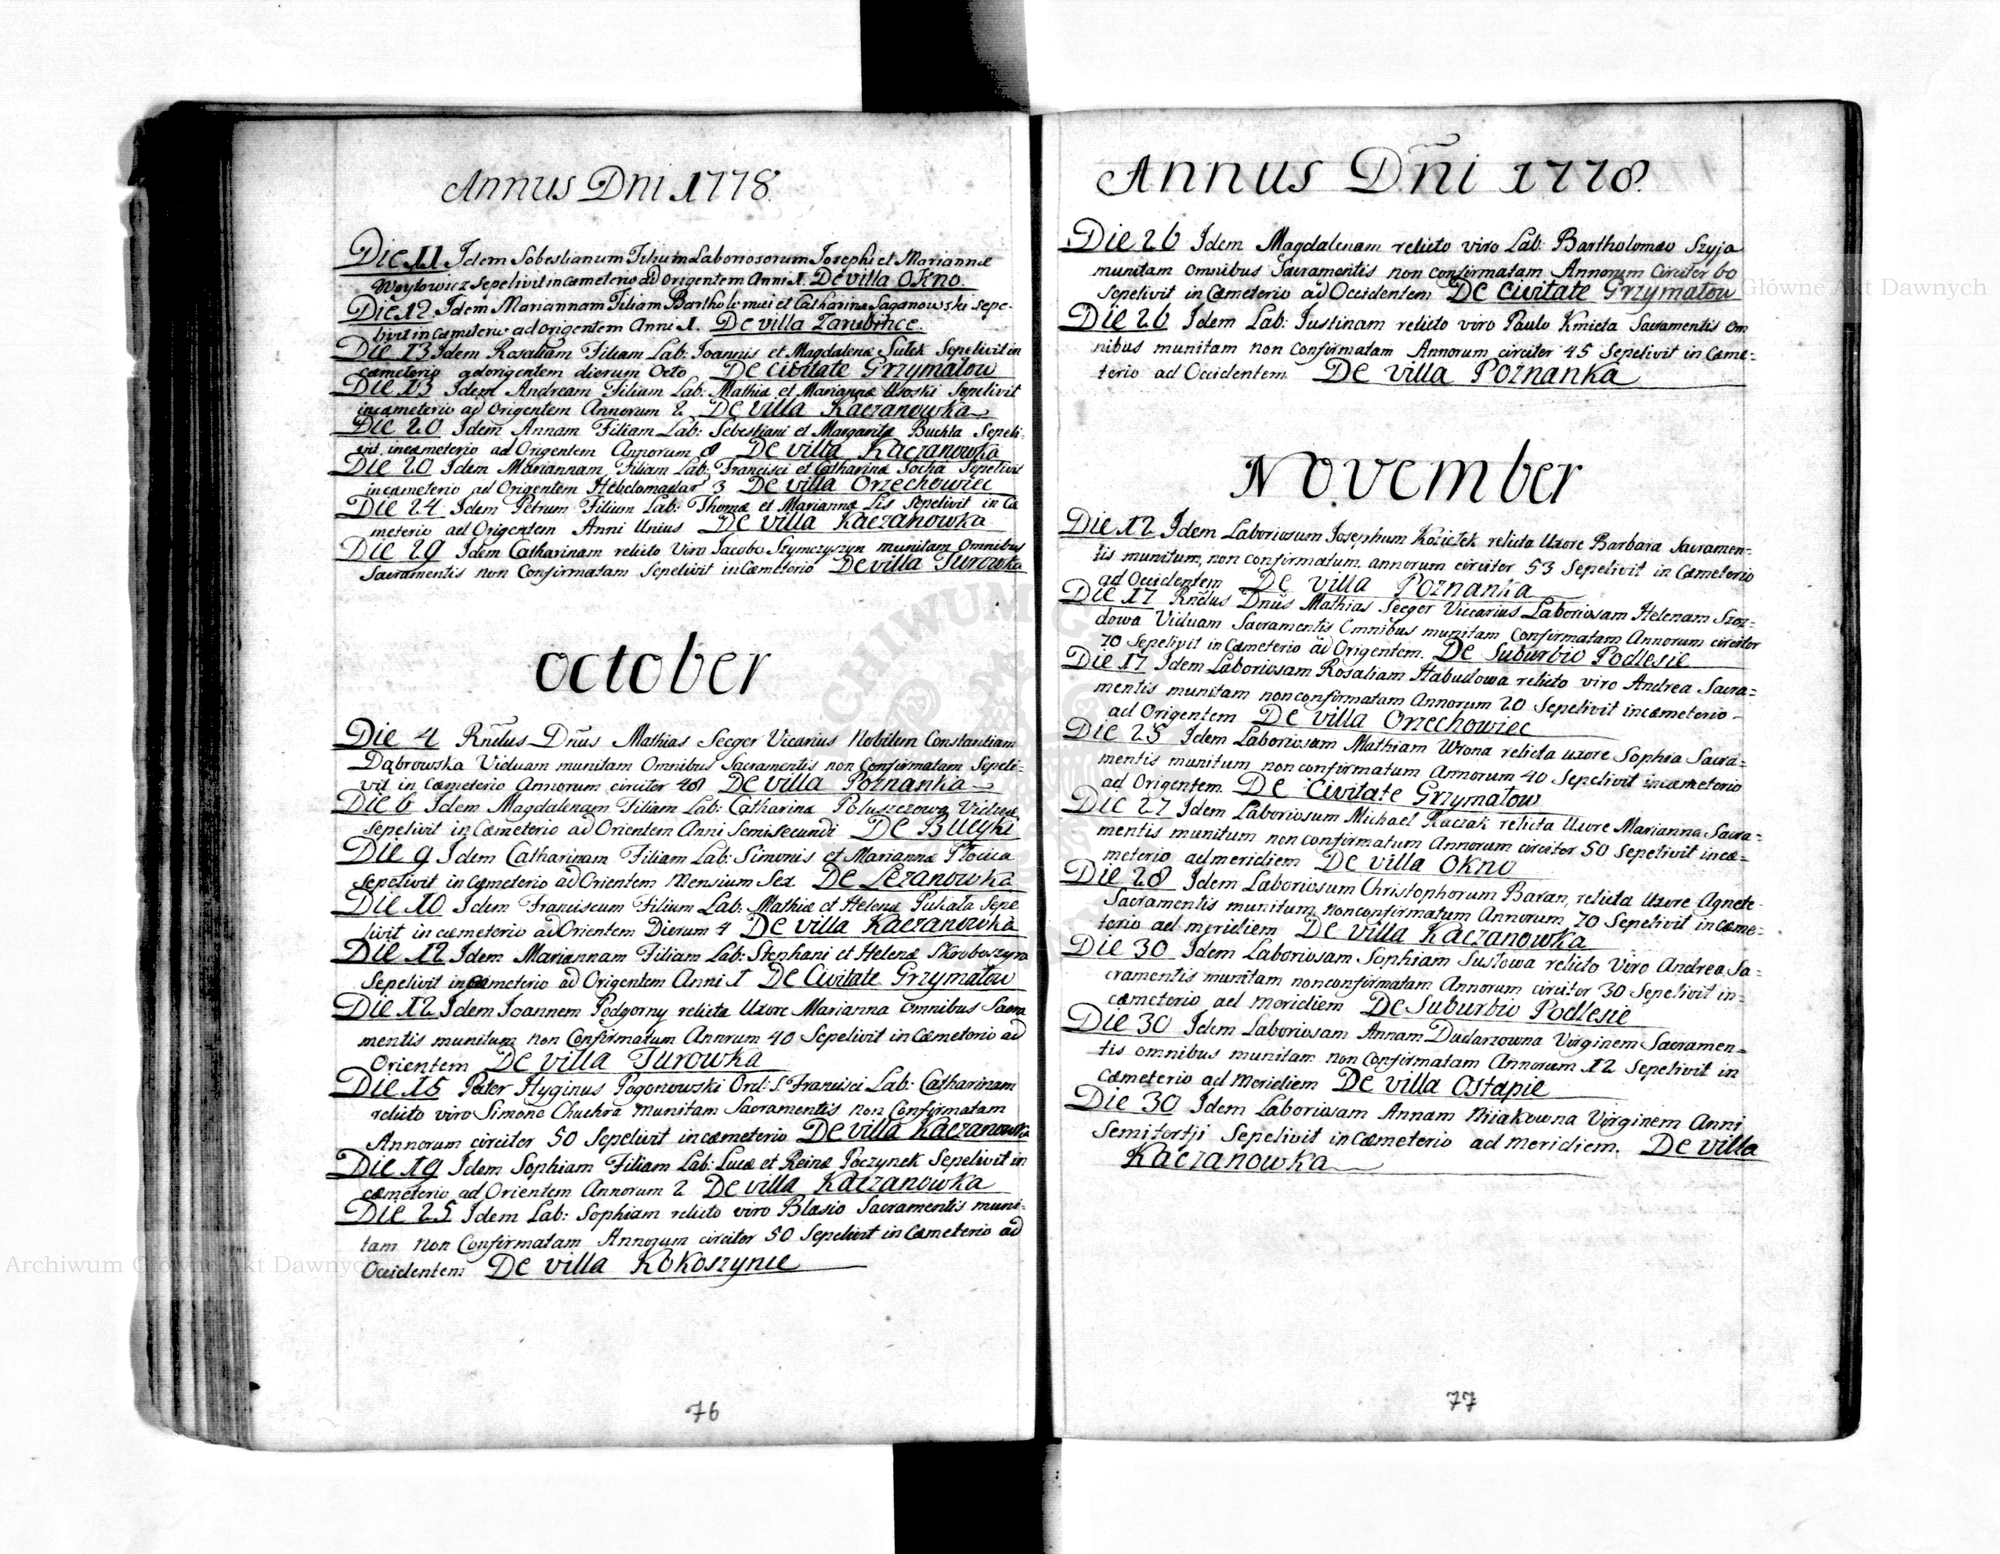 Annus Dni 1778.
Die 11 Idem Sobestianum Filium Laboriosorum Josephi et Mariannæ
Woytowicz Sepelivit in cæmeterio ad Origentem Anni 1. De villa Okno.
Die 12 Idem Mariannam Filiam Bartholomiei et Catharinæ Saganowski sepe-
livit in cæmeterio ad origentem Anni 1. De villa Zarubince.
Die 13 Idem Rosaliam Filiam Lab: Joannis et Magdalenæ Sulek Sepelivit in
cæmeterio ad origentem dierum Octo De civitate Grzymałow
Die 13 Idem Andream Filium Lab: Mathiæ et Mariannæ Usoski Sepelivit
in cæmeterio ad Origentem Annorum 2 De villa Kaczanowka
Die 20 Idem Annam Filiam Lab: Sebestiani et Margaritæ Buchla Sepeli-
vit in cæmeterio ad Origentem Annorum 8 De villa Kaczanowka
Die 20 Idem Mariannam Filiam Lab: Francisci et Catharinæ Socha Sepelivit
in cæmeterio ad Origentem Hebdomadar 3 De villa Orzechowiec
Die 24 Idem Petrum Filium Lab: Thomæ et Mariannæ Lis Sepelivit in Cæ
meterio ad Origentem Anni Unius De villa Kaczanowka
Die 29 Idem Catharinam relicto Viro Jacobo Szymczyszyn munitam Omnibus
Sacramentis non Confirmatam Sepelivit in Cæmeterio De villa Turowka
October
Die 4 Rndus Dnus Mathias Seeger Vicarius Nobilem Constantiam
Dąbrowska Viduam munitam Omnibus Sacramentis non Confirmatam Sepeli-
vit in Cæmeterio Annorum circiter 48 De villa Poznanka
Die 6 Idem Magdalenam Filiam Lab: Catharinæ Poluszczowa Viduæ
Sepelivit in Cæmeterio ad Orientem Anni Semisecundi De Bucyki
Die 9 Idem Catharinam Filiam Lab: Simonis et Mariannæ Płocica
Sepelivit in Cæmeterio ad Orientem Mensium Sex De Lezanowka
Die 10 Idem Franciscum Filium Lab: Mathiæ et Helenæ Pukała Sepe
livit in cæmeterio ad Orientem Dierum 4 De villa Kaczanowka
Die 12 Idem Mariannam Filiam Lab: Stephani et Helenæ Skoroboszyna
Sepelivit in Cæmeterio ad Origentem Anni 1 De Civitate Grzymałow
Die 12 Idem Joannem Podgorny relicta Uxore Marianna Omnibus Sacra
mentis munitum non Confirmatum Annorum 40 Sepelivit in Cæmeterio ad
Orientem De villa Turowka
Die 15 Pater Hyginus Pogonowski Ord: S. Francisci Lab: Catharinam
relicto viro Simone Chuchra Munitam Sacramentis non Confirmatam
Annorum circiter 50 Sepelivit in cæmeterio De villa Kaczanowka
Die 19 Idem Sophiam Filiam Lab: Lucæ et Reinæ Poczynek Sepelivit in
cæmeterio ad Orientem Annorum 2 De villa Kaczanowka
Die 25 Idem Lab: Sophiam relicto viro Blasio Sacramentis muni-
tam Non Confirmatam Annorum circiter 50 Sepelivit in Cæmeterio ad
Occidentem De villa Kokoszynce
76
Annus Dñi 1778.
Die 26 Idem Magdalenam relicto viro Lab: Bartholomæo Szyja
munitam Omnibus Sacramentis non confirmatam Annorum Circiter 60
Sepelivit in Cæmeterio ad Occidentem De Civitate Grzymałow
Die 26 Idem Lab: Justinam relicto viro Paulo Kmieta Sacramentis Om
nibus munitam non Confirmatam Annorum circiter 45 Sepelivit in Cæme-
terio ad Occidentem De villa Poznanka
November
Die 12 Idem Laboriosum Josephum Koziołek relicta Uxore Barbara Sacramen-
tis munitum, non confirmatum, annorum circiter 53 Sepelivit in Cæmeterio
ad Occidentem De villa Poznanka
Die 17 Rndus Dnus Mathias Seeger Viccarius Laboriosam Helenam Szoz-
dowa Viduam Sacramentis Omnibus munitam Confirmatam Annorum circiter
70 Sepelivit in Cæmeterio ad Origentem. De Suburbio Podlesie
Die 17 Idem Laboriosam Rosaliam Habudowa relicto viro Andrea Sacra-
mentis munitam non confirmatam Annorum 20 Sepelivit in cæmeterio
ad Origentem De villa Orzechowiec
Die 25 Idem Laboriosum Mathiam Wrona relicta uxore Sophia Sacra-
mentis munitum non confirmatum Annorum 40 Sepelivit in cæmeterio
ad Origentem De Civitate Grzymałow
Die 27 Idem Laboriosum Michael Kaczak relicta Uxore Marianna Sacra-
mentis munitum non confirmatum Annorum circiter 50 Sepelivit in cæ-
meterio ad meridiem De villa Okno
Die 28 Idem Laboriosum Christophorum Baran, relicta Uxore Agnete
Sacramentis munitum non confirmatum Annorum 70 Sepelivit in Cæme-
terio ad meridiem De villa Kaczanowka
Die 30 Idem Laboriosam Sophiam Susłowa relicto Viro Andrea Sa-
cramentis munitam non confirmatam Annorum circiter 30 Sepelivit in-
cæmeterio ad Meridiem De Suburbio Podlesie
Die 30 Idem Laboriosam Annam Dudarzowna Virginem Sacramen-
tis omnibus munitam non Confirmatam Annorum 12 Sepelivit in
Cæmeterio ad Meridiem De villa Ostapie
Die 30 Idem Laboriosam Annam Miakowna Virginem Anni
Semitertji Sepelivit in Cæmeterio ad meridiem. De villa
Kaczanowka
77
Archiwum Główne Akt Dawnych
Główne Akt Dawnych